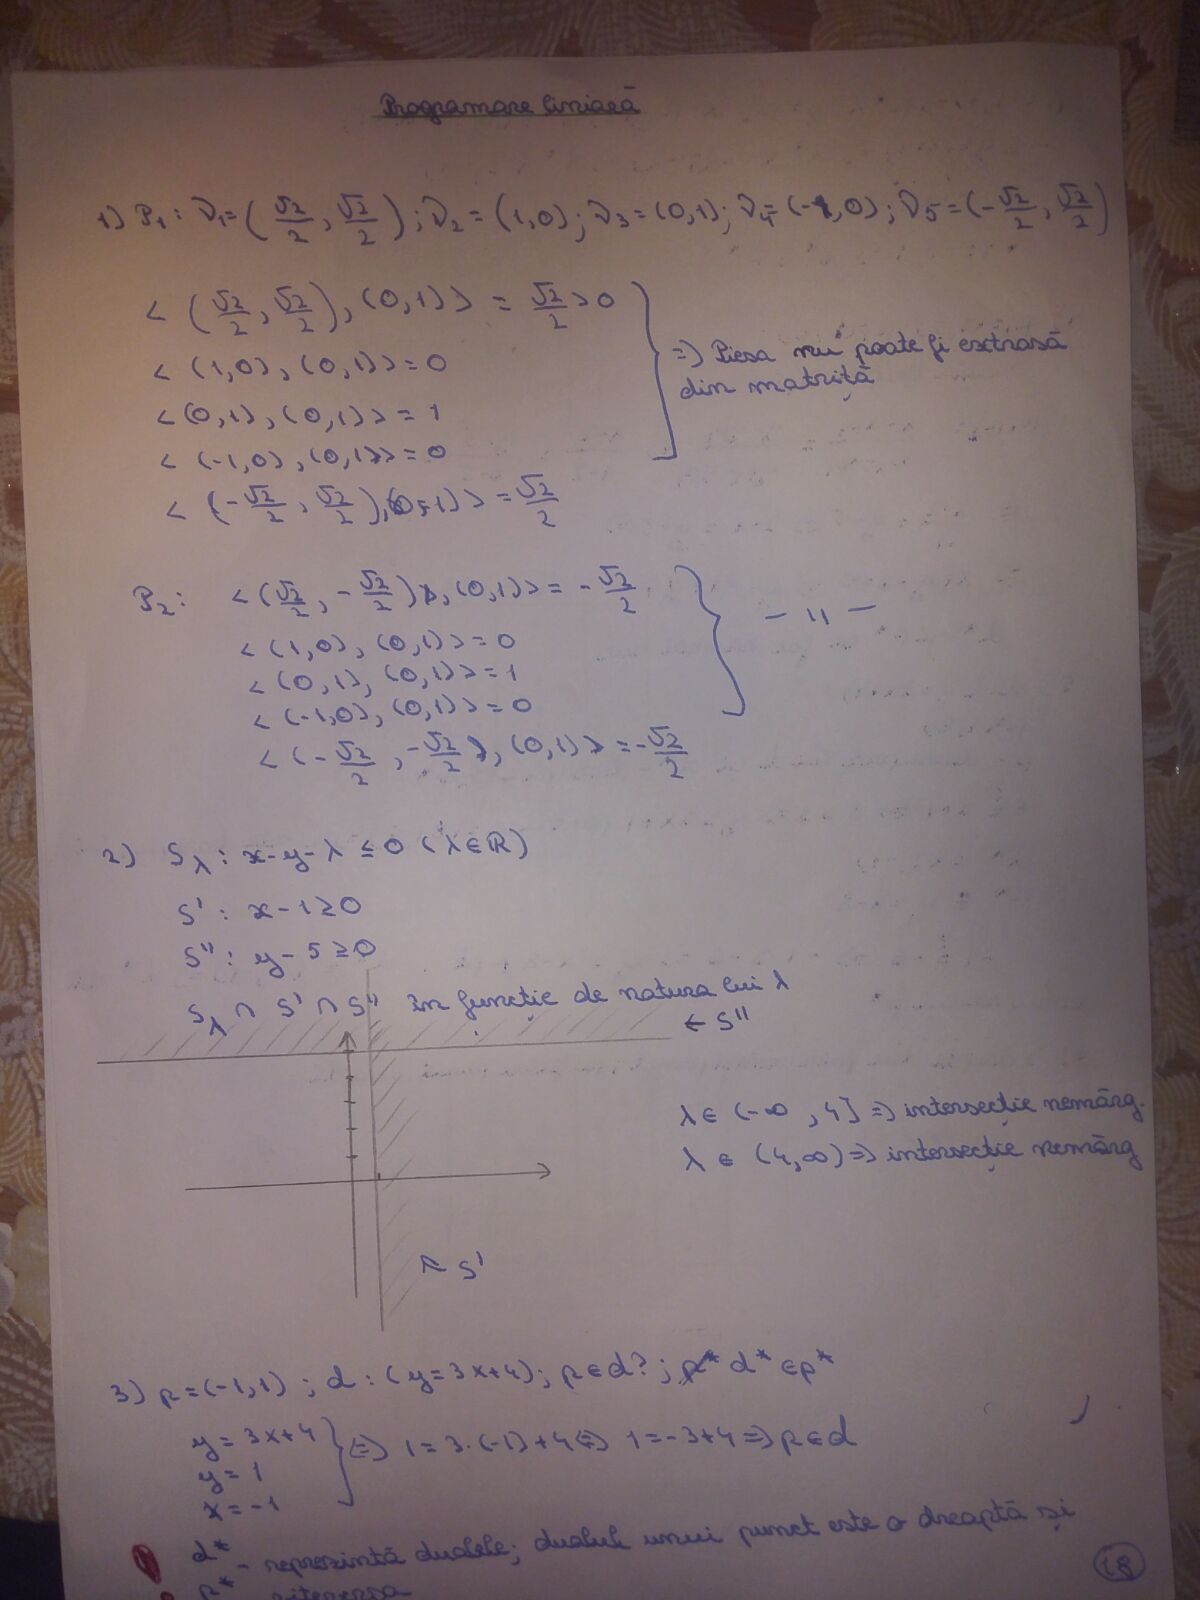 Programare liniară
1) P₁: ν₁=(√2/2, √2/2); ν₂=(1,0); ν₃=(0,1); ν₄=(-1,0); ν₅=(-√2/2, √2/2)
<(√2/2, √2/2), (0,1)> = √2/2 > 0
<(1,0), (0,1)> = 0
⇒ Piesa nu poate fi extrasă
din matriță
<(0,1), (0,1)> = 1
<(-1,0), (0,1)> = 0
<(-√2/2, √2/2), (0,1)> = √2/2
P₂: <(√2/2, -√2/2), (0,1)> = -√2/2
— 11 —
<(1,0), (0,1)> = 0
<(0,1), (0,1)> = 1
<(-1,0), (0,1)> = 0
<(-√2/2, -√2/2), (0,1)> = -√2/2
2) S_λ: x-y-λ ≤ 0 (λ∈ℝ)
S': x-1≥0
S'': y-5≥0
S_λ ∩ S' ∩ S'' în funcție de natura lui λ
← S''
λ∈(-∞, 4] ⇒ intersecție nemărg.
λ∈(4,∞) ⇒ intersecție nemărg
S'
3) p=(-1,1); d: (y=3x+4); p∈d?; d*∈p*
y=3x+4
y=1
x=-1
⇔ 1=3·(-1)+4 ⇔ 1=-3+4 ⇒ p∈d
d*
p*
- reprezintă dualele; dualul unui punct este o dreaptă și
viceversa
18